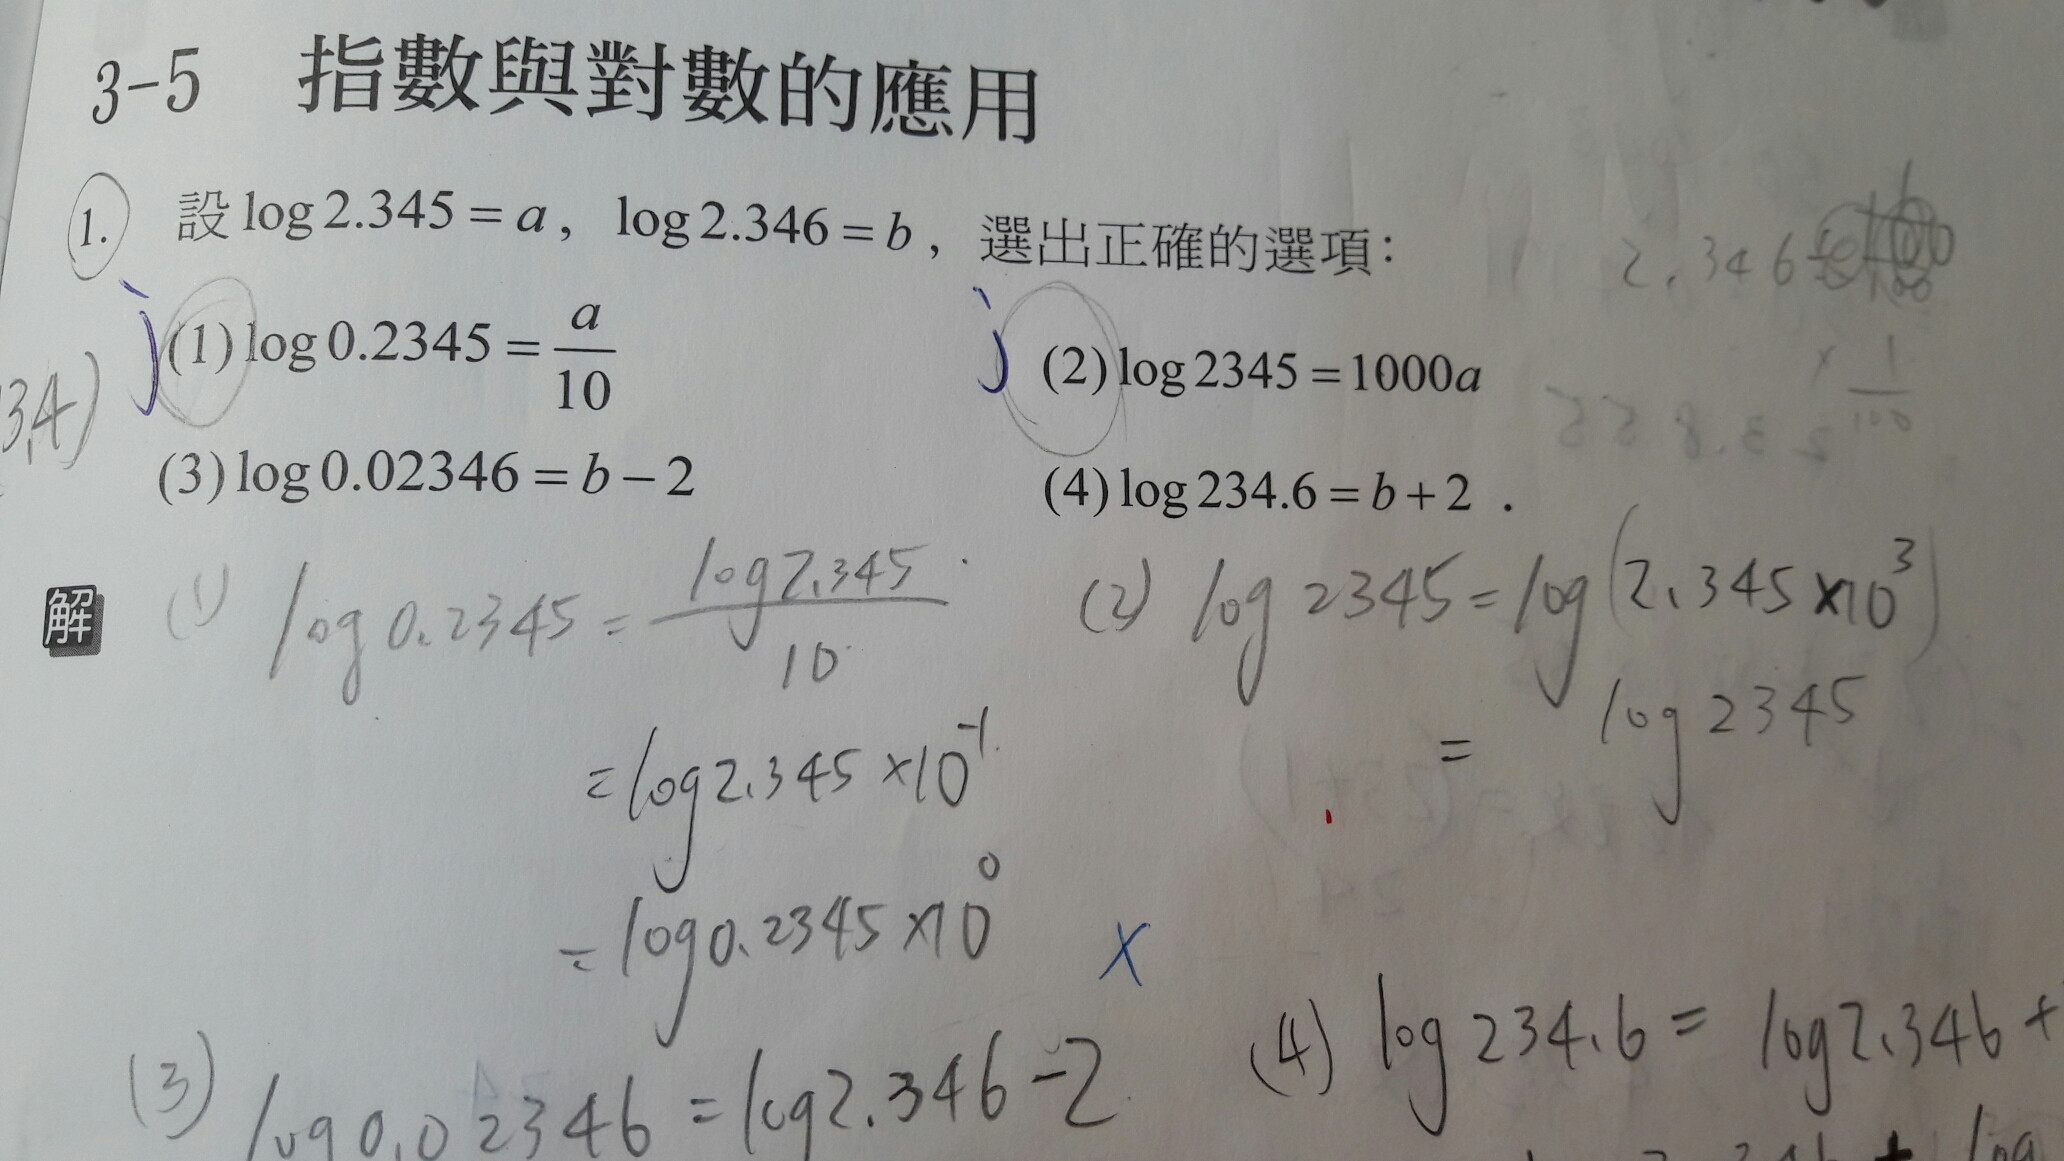 3-5 指數與對數的應用
1. 設 log 2.345 = a, log 2.346 = b, 選出正確的選項:
(1) log 0.2345 = a/10 (2) log 2345 = 1000a
(3) log 0.02346 = b − 2 (4) log 234.6 = b + 2 .
3,4)
2.346
× 1/100
解
(1) log 0.2345 = log 2.345/10
= log 2.345 × 10⁻¹
= log 0.2345 × 10⁰ X
(2) log 2345 = log (2.345 × 10³)
= log 2345
(3) log 0.02346 = log 2.346 − 2
(4) log 234.6 = log 2.346 +